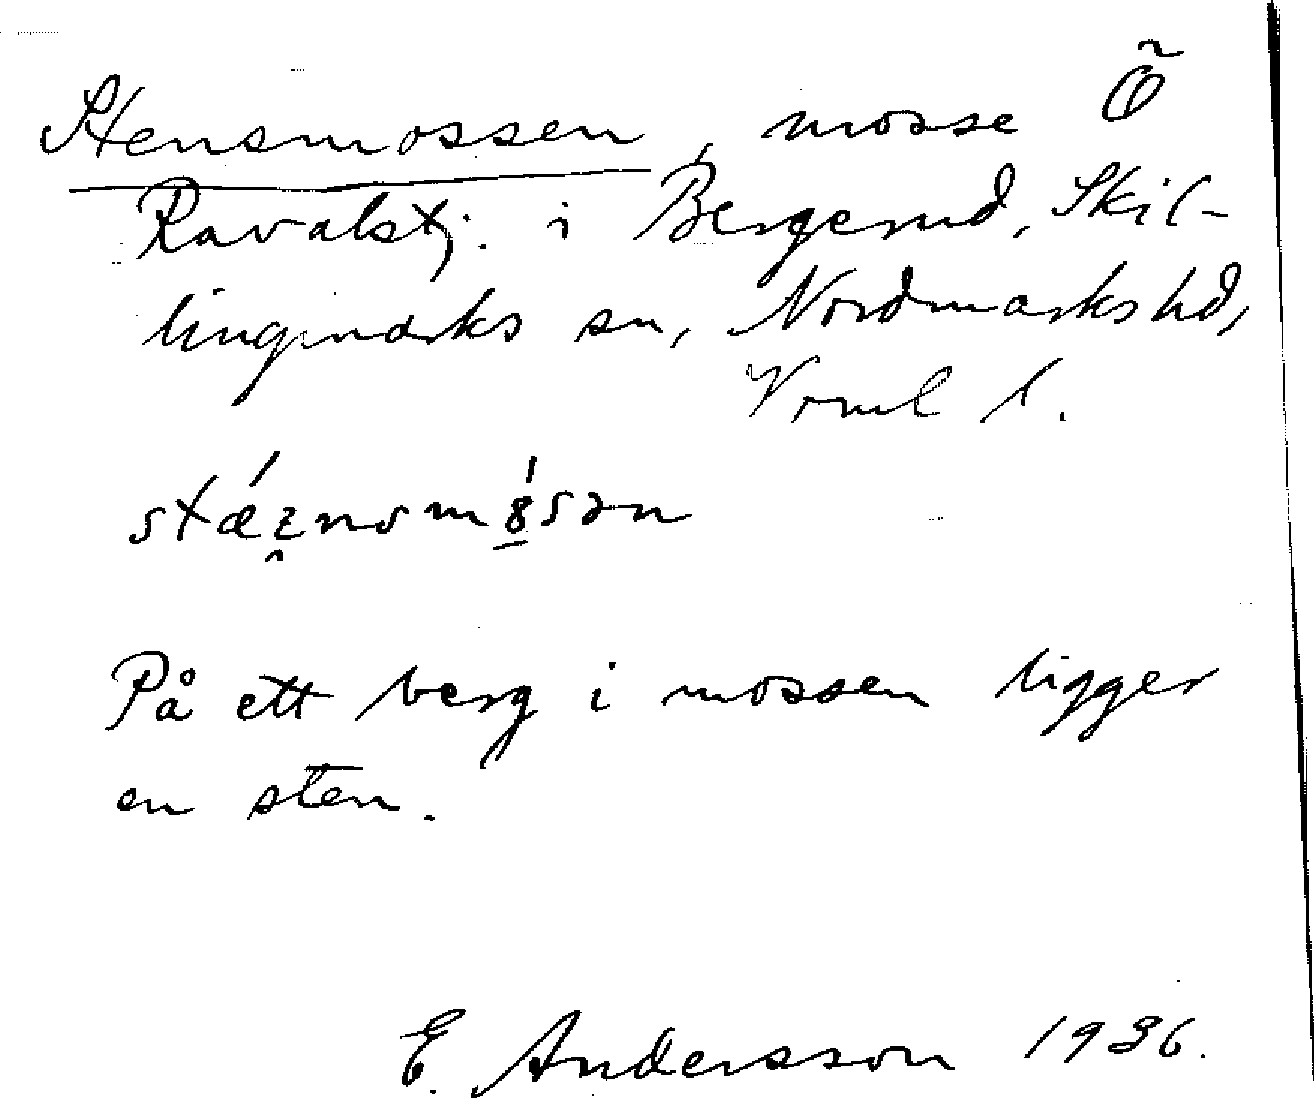 Stensmossen, mosse Ö
Ravalstj. i Bergerud, Skil-
lingmarks sn, Nordmarks hd,
Vrml l.
stǽznsmȣ́sən
På ett berg i mossen ligger
en sten.
E. Andersson 1936.